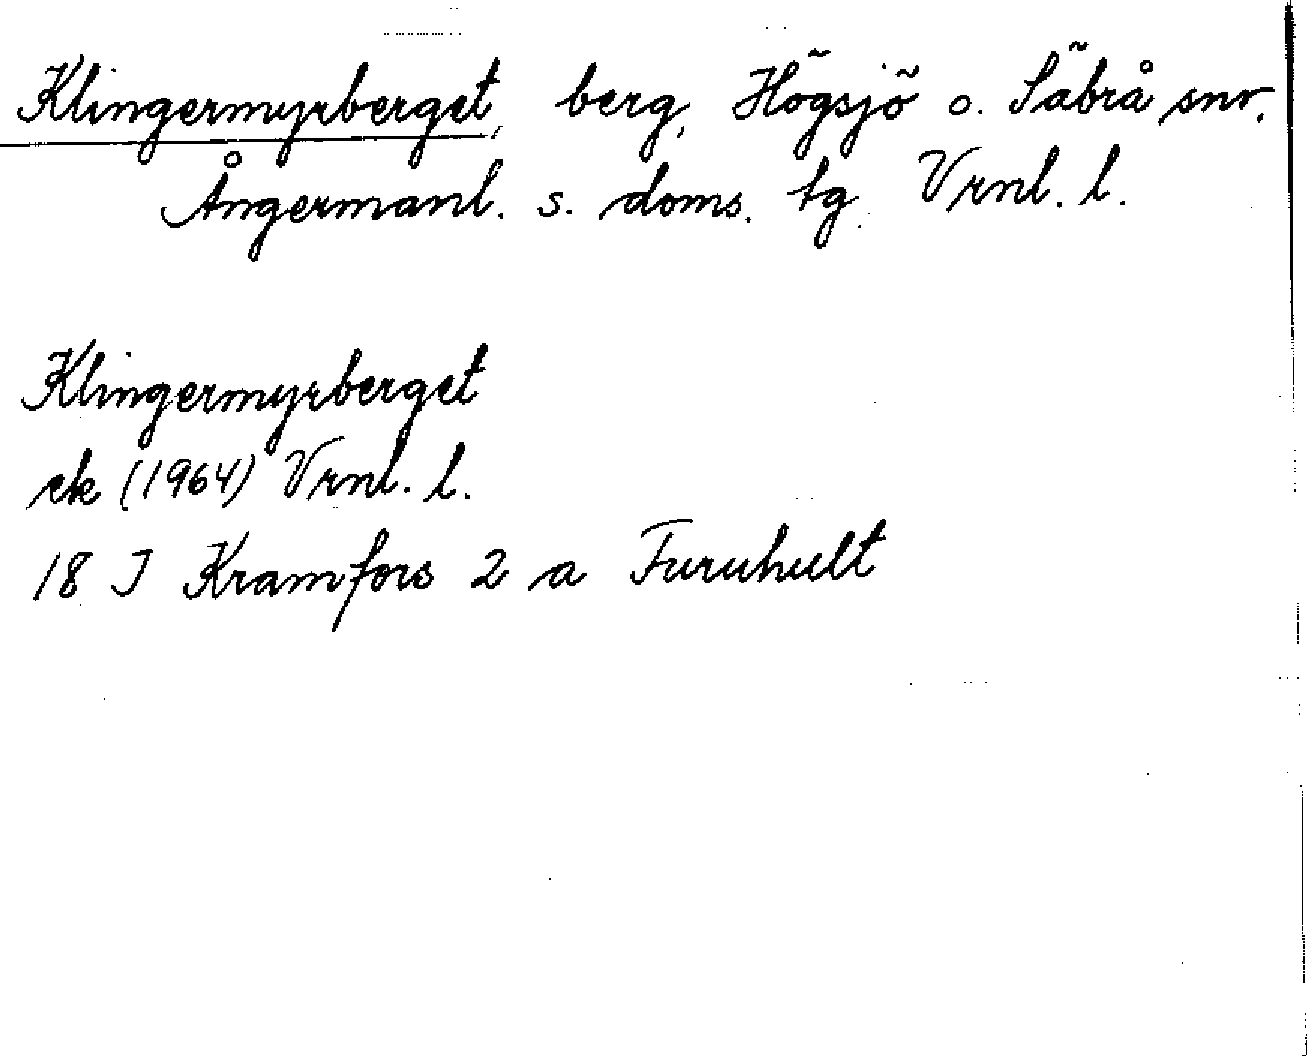 Klingermyrberget, berg, Högsjö o. Säbrå snr.
Ångermanl. s. doms. tg. Vrnl. l.
Klingermyrberget
ek (1964) Vrnl. l.
18 I Kramfors 2 a Furuhult